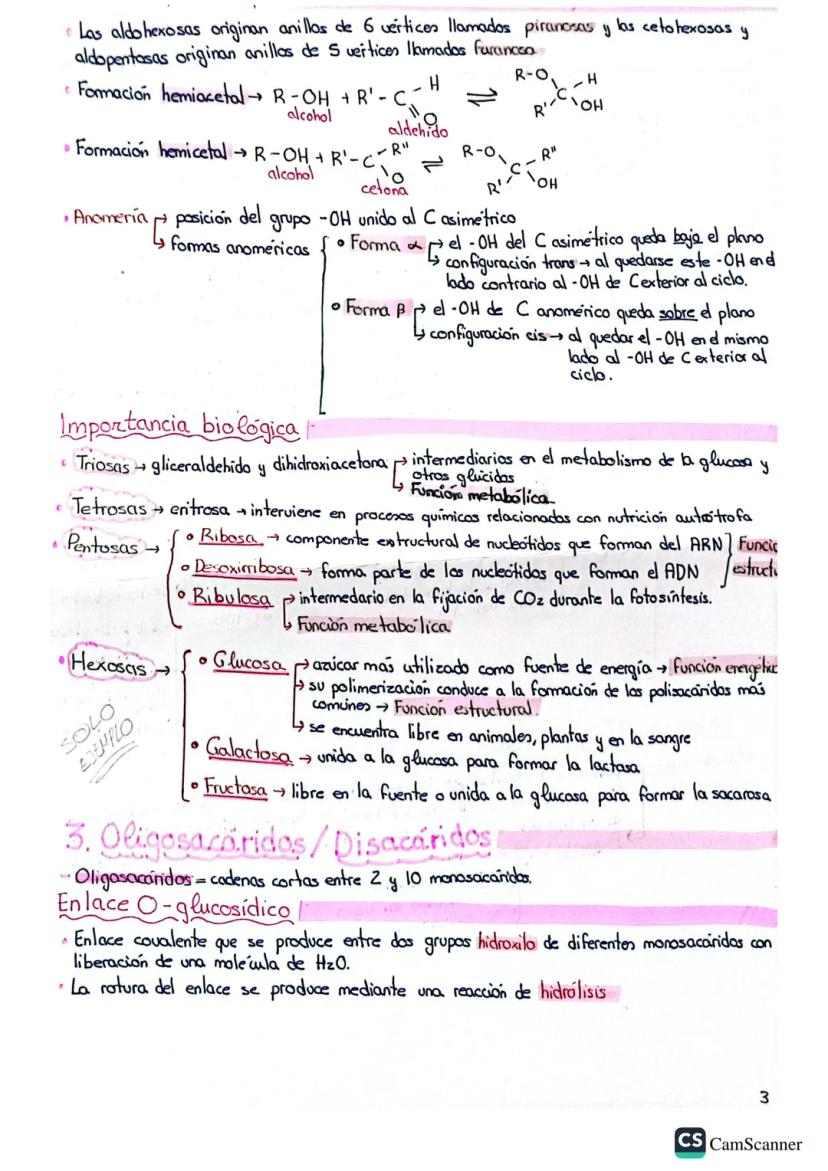 Las aldohexosas originan anillos de 6 vértices llamados piranosas y las cetohexosas y
aldopentosas originan anillos de 5 vértices llamados furanosa
Formación hemiacetal → R-OH + R'-C-H ⇌ R-O H
O R' C OH
alcohol aldehido
Formación hemicetal → R-OH + R'-C-R'' ⇌ R-O R''
O R' C OH
alcohol cetona
Anomería → posición del grupo -OH unido al C asimétrico
→ formas anoméricas
Forma α → el -OH del C asimétrico queda bajo el plano
→ configuración trans → al quedarse este -OH en el
lado contrario al -OH de C exterior al ciclo.
Forma β → el -OH de C anomérico queda sobre el plano
→ configuración cis → al quedar el -OH en el mismo
lado al -OH de C exterior al
ciclo.
Importancia biológica
Triosas → gliceraldehido y dihidroxiacetona → intermediarios en el metabolismo de la glucosa y
otros glúcidos
→ Función metabólica.
Tetrosas → eritrosa → interviene en procesos químicos relacionados con nutrición autótrofa
Pentosas →
Ribosa → componente estructural de nucleótidos que forman del ARN } Funció
Desoxirribosa → forma parte de los nucleótidos que forman el ADN } estruct
Ribulosa → intermedario en la fijación de CO2 durante la fotosíntesis.
→ Función metabólica
Hexosas →
Glucosa → azúcar más utilizado como fuente de energía → Función energétic
→ su polimerización conduce a la formación de los polisacáridos más
comúnes → Función estructural.
→ se encuentra libre en animales, plantas y en la sangre
SOLO
EJEMPLO
Galactosa → unida a la glucosa para formar la lactosa
Fructosa → libre en la fuente o unida a la glucosa para formar la sacarosa
3. Oligosacáridos / Disacáridos
- Oligosacáridos = cadenas cortas entre 2 y 10 monosacáridos.
Enlace O-glucosídico
Enlace covalente que se produce entre dos grupos hidroxilo de diferentes monosacáridos con
liberación de una molécula de H2O.
La rotura del enlace se produce mediante una reacción de hidrólisis
3
CS CamScanner